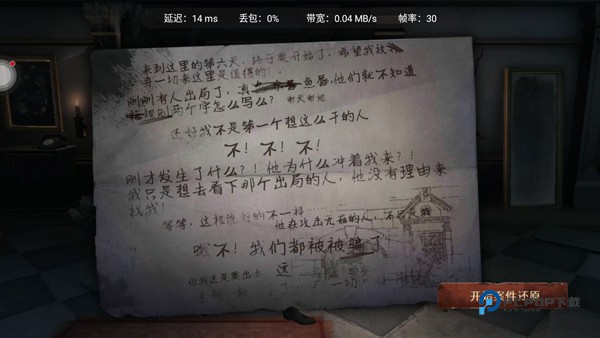 延迟：14 ms 丢包：0% 带宽：0.04 MB/s 帧率：30
来到这里的第六天，终于要开始了，希望我放
弃一切来这里是值得的！
刚刚有人出局了，真 鱼唇，他们就不知道
规则两个字怎么写么？ 谢天谢地
还好我不是第一个想这么干的人
不！不！不！
刚才发生了什么？！他为什么冲着我来？！
我只是想去看下那个出局的人，他没有理由来
找我！
等等，这根 的不一样
他在攻击无辜的人
不！我们都被被骗了
但我还是要出去
远
一切
开始案件还原
下载